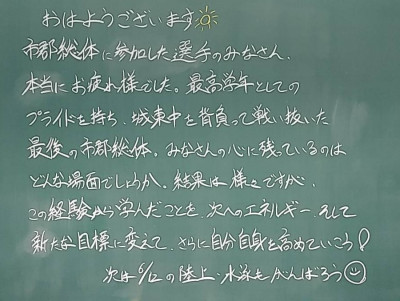 おはようございます
市郡総体に参加した選手のみなさん、
本当にお疲れ様でした。最高学年としての
プライドを持ち、城東中を背負って戦い抜いた
最後の市郡総体。みなさんの心に残っているのは
どんな場面でしょうか。結果は様々ですが、
この経験から学んだことを、次へのエネルギー、そして
新たな目標に変えて、さらに自分自身を高めていこう!
次は6/12の陸上・水泳もがんばろう